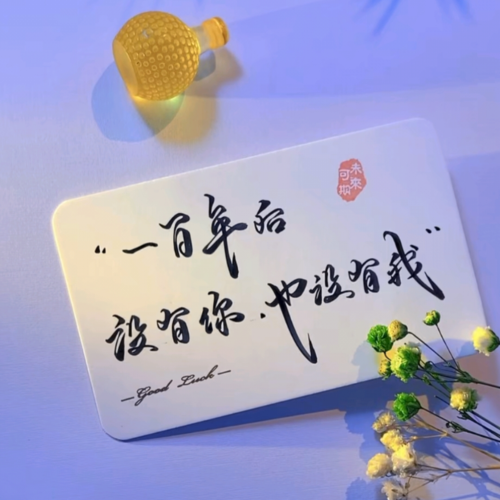 未来
可期
“一百年后
没有你.也没有我”
—Good Luck—